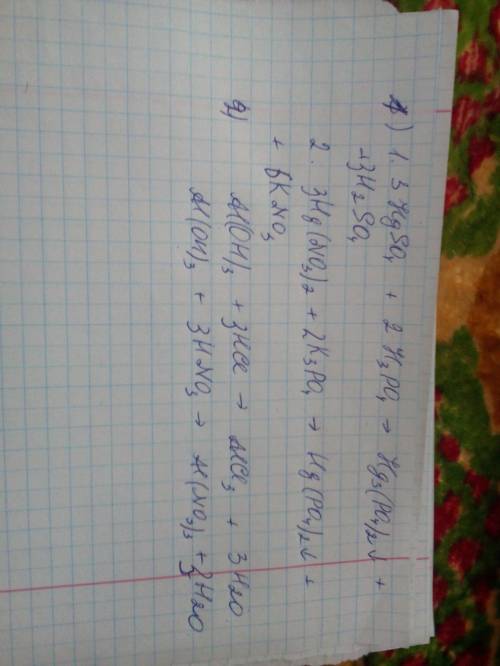 1) 1. 3HgSO₄ + 2H₃PO₄ → Hg₃(PO₄)₂↓ +
+3H₂SO₄
2. 3Hg(NO₃)₂ + 2K₃PO₄ → Hg(PO₄)₂↓ +
+ 6KNO₃
2) Al(OH)₃ + 3HCl → AlCl₃ + 3H₂O
Al(OH)₃ + 3HNO₃ → Al(NO₃)₃ + 3H₂O